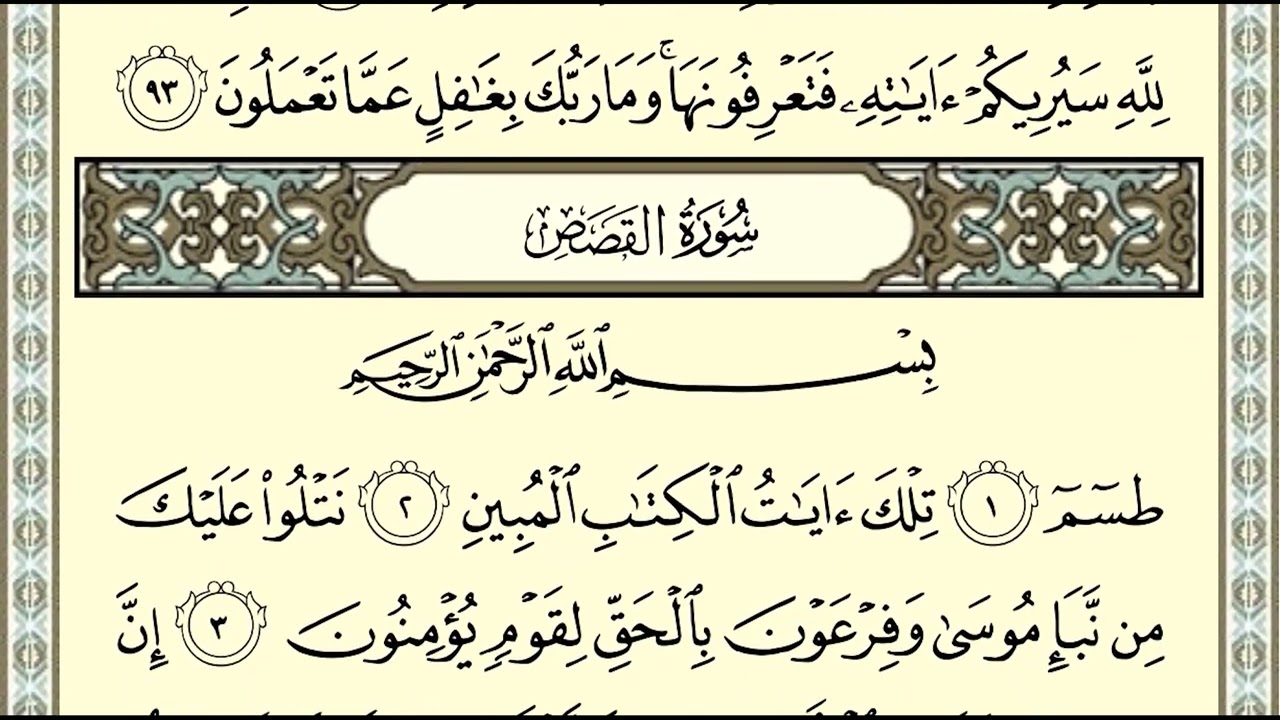 لِلَّهِ سَيُرِيكُمْ ءَايَـٰتِهِۦ فَتَعْرِفُونَهَا ۚ وَمَا رَبُّكَ بِغَـٰفِلٍ عَمَّا تَعْمَلُونَ ٩٣
سُورَةُ القَصَصِ
بِسْمِ ٱللَّهِ ٱلرَّحْمَـٰنِ ٱلرَّحِيمِ
طسٓمٓ ١ تِلْكَ ءَايَـٰتُ ٱلْكِتَـٰبِ ٱلْمُبِينِ ٢ نَتْلُوا۟ عَلَيْكَ
مِن نَّبَإِ مُوسَىٰ وَفِرْعَوْنَ بِٱلْحَقِّ لِقَوْمٍ يُؤْمِنُونَ ٣ إِنَّ